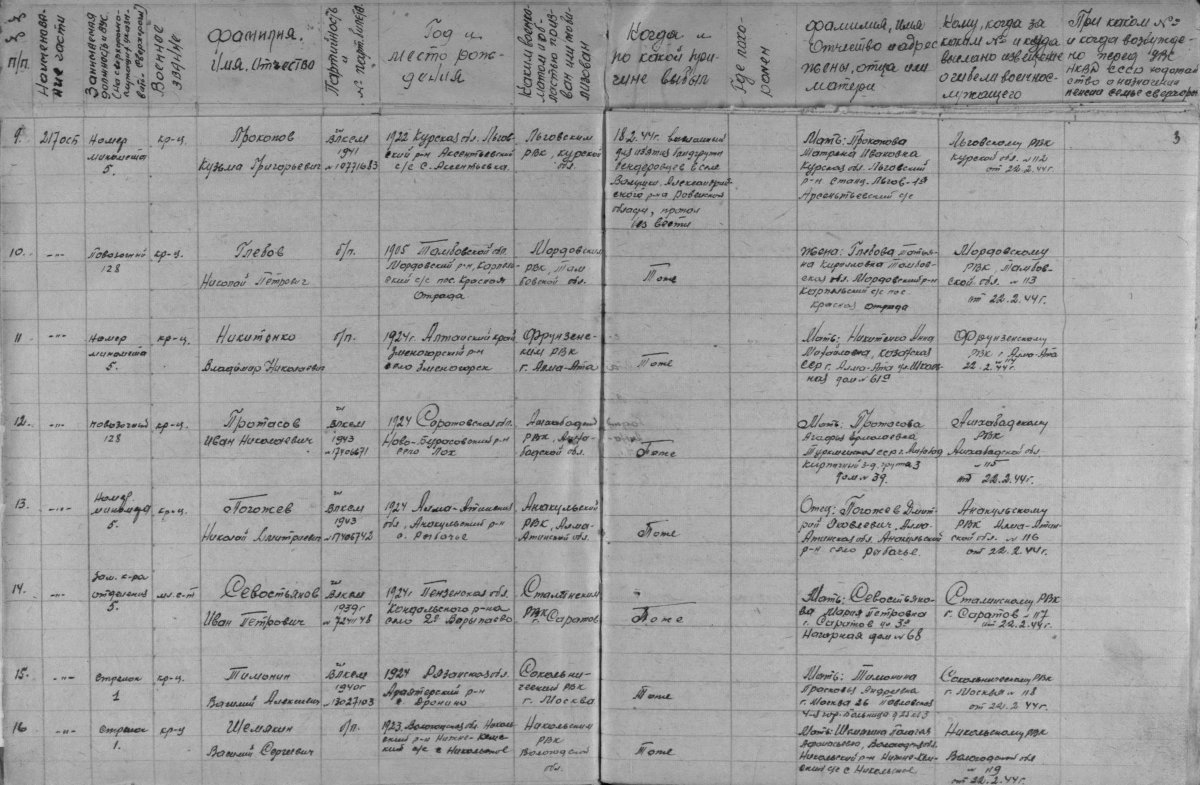 №№ п/п
Наименование части
Занимаемая должность и ВУС
Военное звание
Фамилия, Имя, Отчество
Партийность и № парт. билета
Год и место рождения
Каким военкоматом и областью призван или мобилизован
Когда и по какой причине выбыл
Где похоронен
Фамилия, имя Отчество и адрес жены, отца или матери
Кому, когда за каким № и куда выслано извещение о гибели военнослужащего
При каком № и когда возбуждено перед УНКВД СССР ходатайство о назначении пенсии семье
3
9.
217 осп
Номер
миномета
5.
кр-ц.
Прокопов
Кузьма Григорьевич
ВЛКСМ
1941
№ 10771683
1922 Курская обл. Льгов-
ский р-н
с/с с.
Льговским
РВК, Курской
обл.
18.2.44г.
для изъятия бандгруппы
бендеровцев в селе
Александрий-
ского р-на Ровенской
области, пропал
без вести
Мать: Прокопова
Матрена Ивановна
Курская обл. Льговский
р-н станц. Льгов-1я
Арсентьевский с/с
Льговскому РВК
Курской обл. № 112
от 22.2.44г.
10.
-"-
Повозочный
128
кр-ц.
Глебов
Николай Петрович
б/п.
1905 Тамбовской обл.
Мордовский р-н,
с/с пос. Красная
Отрада
Мордовским
РВК, Там
бовской обл.
Тоже
Жена: Глебова Татья-
на Кириловна Тамбов-
ская обл. Мордовский р-н
с/с пос.
Красная отрада
Мордовскому
РВК, Тамбов-
ской обл. № 113
от 22.2.44г.
11
-"-
Номер
миномета
5.
кр-ц.
Никитенко
Владимир Николаевич
б/п.
1924г. Алтайский край
Змеиногорский р-н
село Змеиногорск
Фрунзенс-
ким РВК
г. Алма-Ата
Тоже
Мать: Никитенко Анна
Михайловна, Казахская
ССР г. Алма-Ата ул. Школь-
ная дом № 61а
Фрунзенскому
РВК г. Алма-Ата
22.2.44г.
12.
-"-
повозочный
128
кр-ц.
Протасов
Иван Николаевич
ВЛКСМ
1943
№ 17406671
1924 Саратовская обл.
Ново-Бурасовский р-н
село Лох
Ашхабадский
РВК, Ашха-
бадской обл.
Тоже
Мать: Протасова
Агафия Ермолаевна
Туркменская ССР г. Ашхабад
Кирпичный з-д, группа 3
дом № 39.
Ашхабадскому
РВК
Ашхабадской обл.
№ 115
от 22.2.44г.
13.
-"-
Номер
миномета
5.
кр-ц.
Погожев
Николай Дмитриевич
ВЛКСМ
1943
№ 17406742
1924 Алма-Атинская
обл. Анакульский р-н
с. Рыбачье
Анакульский
РВК, Алма-
Атинской обл.
Тоже
Отец: Погожев Дмит-
рий Яковлевич, Алма-
Атинская обл. Анакульский
р-н село Рыбачье.
Анакульскому
РВК Алма-Атин-
ской обл. № 116
от 22.2.44г.
14.
-"-
Зам. к-ра
отделения
5.
мл. с-т
Севостьянов
Иван Петрович
ВЛКСМ
1939г.
№ 7241148
1924г Пензенская обл.
Кондольского р-на
село 2е Варыпаево
Сталинским
РВК
г. Саратов
Тоже
Мать: Севостьяно-
ва Мария Петровна
г. Саратов
Нагорная дом № 68
Сталинскому РВК
г. Саратов № 117
от 22.2.44г.
15.
-"-
Стрелок
1
кр-ц.
Тимонин
Василий Алексеевич
ВЛКСМ
1940г
№ 13027103
1924 Рязанская обл.
р-н
Сокольни-
ческий РВК
г. Москва
Тоже
Мать: Тимонина
Прасковья Андреевна
г. Москва
Сокольническому РВК
г. Москва № 118
от 22.2.44г.
16
-"-
стрелок
1.
кр-ц
Шемякин
Василий Сергеевич
б/п.
1923. Вологодская обл. Николь-
ский р-н
с/с с Никольское
Никольским
РВК
Вологодской
обл.
Тоже
Мать: Шемякина
Вологодская обл.
Никольский р-н
с/с с Никольское
Никольскому РВК
Вологодской обл
№ 119
от 22.2.44г.